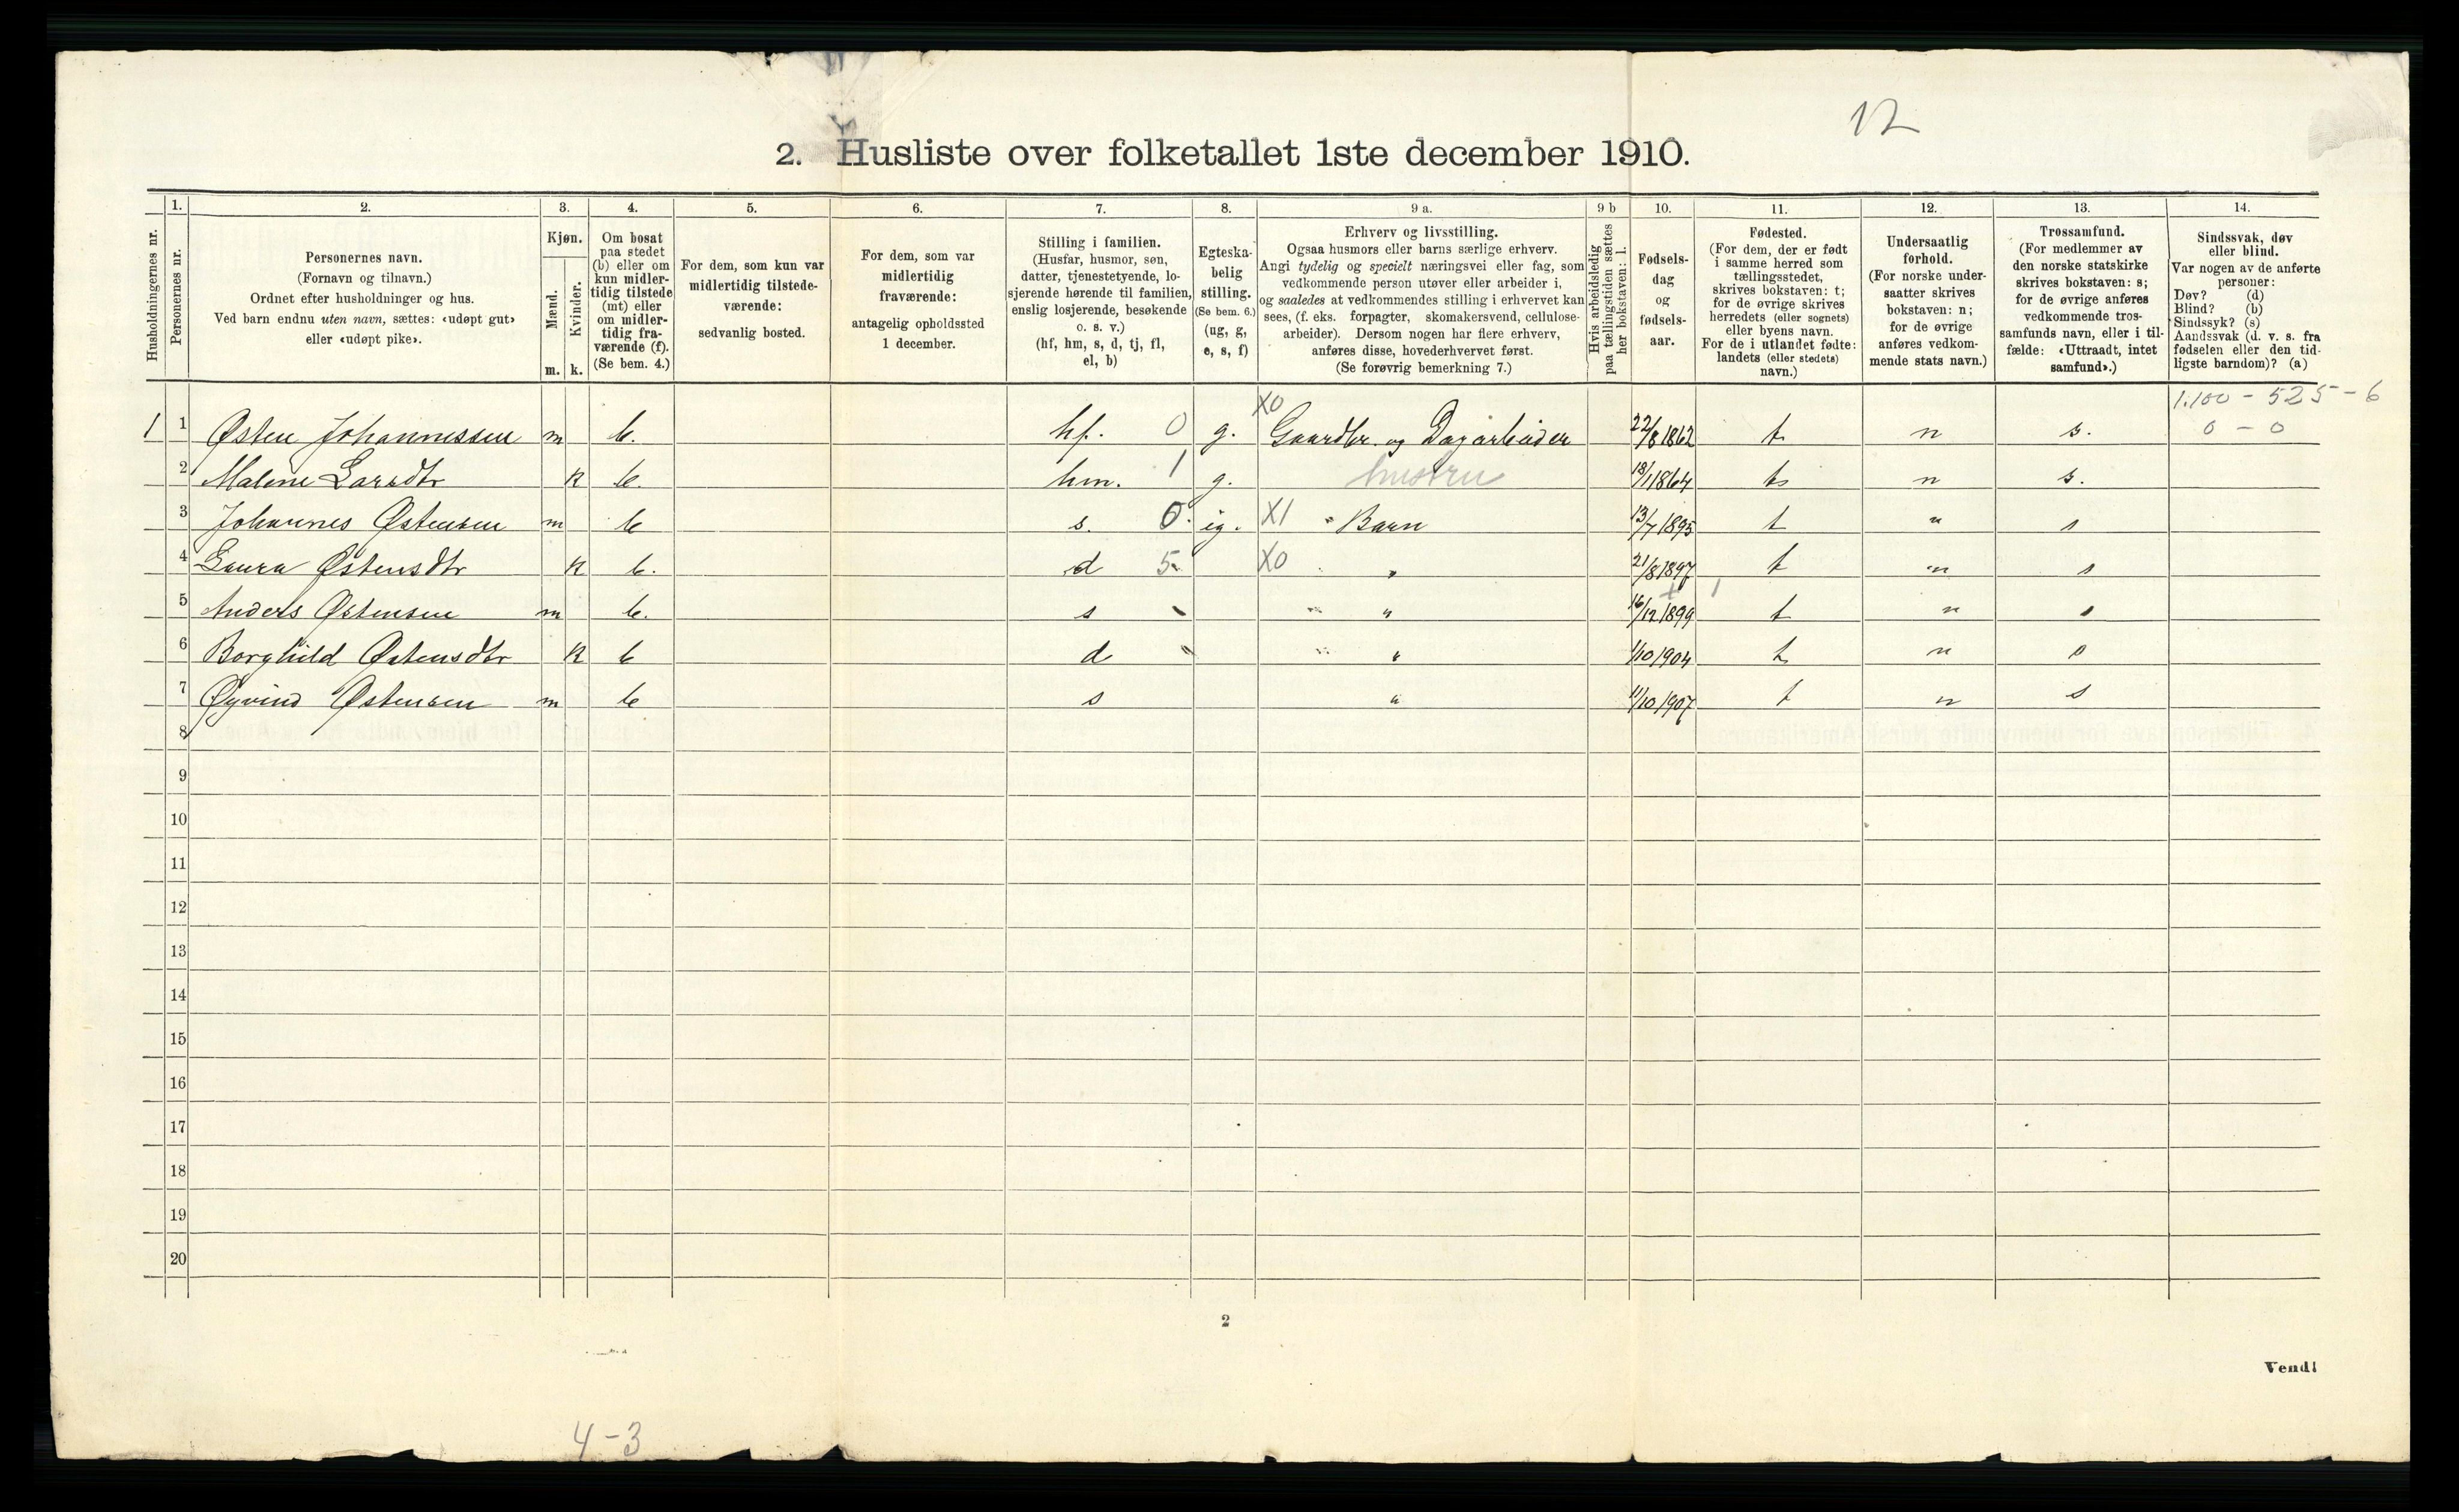 12
2. Husliste over folketallet 1ste december 1910.
Husholdningernes nr.
1.
Personernes nr.
2.
Personernes navn.
(Fornavn og tilnavn.)
Ordnet efter husholdninger og hus.
Ved barn endnu uten navn, sættes: «udøpt gut»
eller «udøpt pike».
3.
Kjøn.
Mænd.
Kvinder.
m. k.
4.
Om bosat
paa stedet
(b) eller om
kun midler-
tidig tilstede
(mt) eller
om midler-
tidig fra-
værende (f).
(Se bem. 4.)
5.
For dem, som kun var
midlertidig tilstede-
værende:
sedvanlig bosted.
6.
For dem, som var
midlertidig
fraværende:
antagelig opholdssted
1 december.
7.
Stilling i familien.
(Husfar, husmor, søn,
datter, tjenestetyende, lo-
sjerende hørende til familien,
enslig losjerende, besøkende
o. s. v.)
(hf, hm, s, d, tj, fl,
el, b)
8.
Egteska-
belig
stilling.
(Se bem. 6.)
(ug, g,
e, s, f)
9 a.
Erhverv og livsstilling.
Ogsaa husmors eller barns særlige erhverv.
Angi tydelig og specielt næringsvei eller fag, som
vedkommende person utøver eller arbeider i,
og saaledes at vedkommendes stilling i erhvervet kan
sees, (f. eks. forpagter, skomakersvend, cellulose-
arbeider). Dersom nogen har flere erhverv,
anføres disse, hovederhvervet først.
(Se forøvrig bemerkning 7.)
9 b
Hvis arbeidsledig
paa tællingstiden sættes
her bokstaven: l.
10.
Fødsels-
dag
og
fødsels-
aar.
11.
Fødested.
(For dem, der er født
i samme herred som
tællingsstedet,
skrives bokstaven: t;
for de øvrige skrives
herredets (eller sognets)
eller byens navn.
For de i utlandet fødte:
landets (eller stedets)
navn.)
12.
Undersaatlig
forhold.
(For norske under-
saatter skrives
bokstaven: n;
for de øvrige
anføres vedkom-
mende stats navn.)
13.
Trossamfund.
(For medlemmer av
den norske statskirke
skrives bokstaven: s;
for de øvrige anføres
vedkommende tros-
samfunds navn, eller i til-
fælde: «Uttraadt, intet
samfund».)
14.
Sindssvak, døv
eller blind.
Var nogen av de anførte
personer:
Døv? (d)
Blind? (b)
Sindssyk? (s)
Aandssvak (d. v. s. fra
fødselen eller den tid-
ligste barndom)? (a)
X0 1.100 - 525 - 6
1 1 Østen Johannessen m b. hf. 0 g. Gaardbr. og Dagarbeider 22/8 1862 t n s. 0 - 0
2 Malene Larsdtr k b. hm. 1 g. hustru 18/1 1864 t n s.
3 Johannes Østensen m b s. 0. ig. X1 " Barn 13/7 1895 t n s
4 Laura Østensdtr k b. d 5 X0 " 21/8 1897 t n s
5 Anders Østensen m b. s " " 16/12 1899 t n s
6 Borghild Østensdtr k b d " " 1/10 1904 t n s
7 Øyvind Østensen m b s " 11/10 1907 t n s
8
9
10
11
12
13
14
15
16
17
18
19
20
2
Vend!
4-3